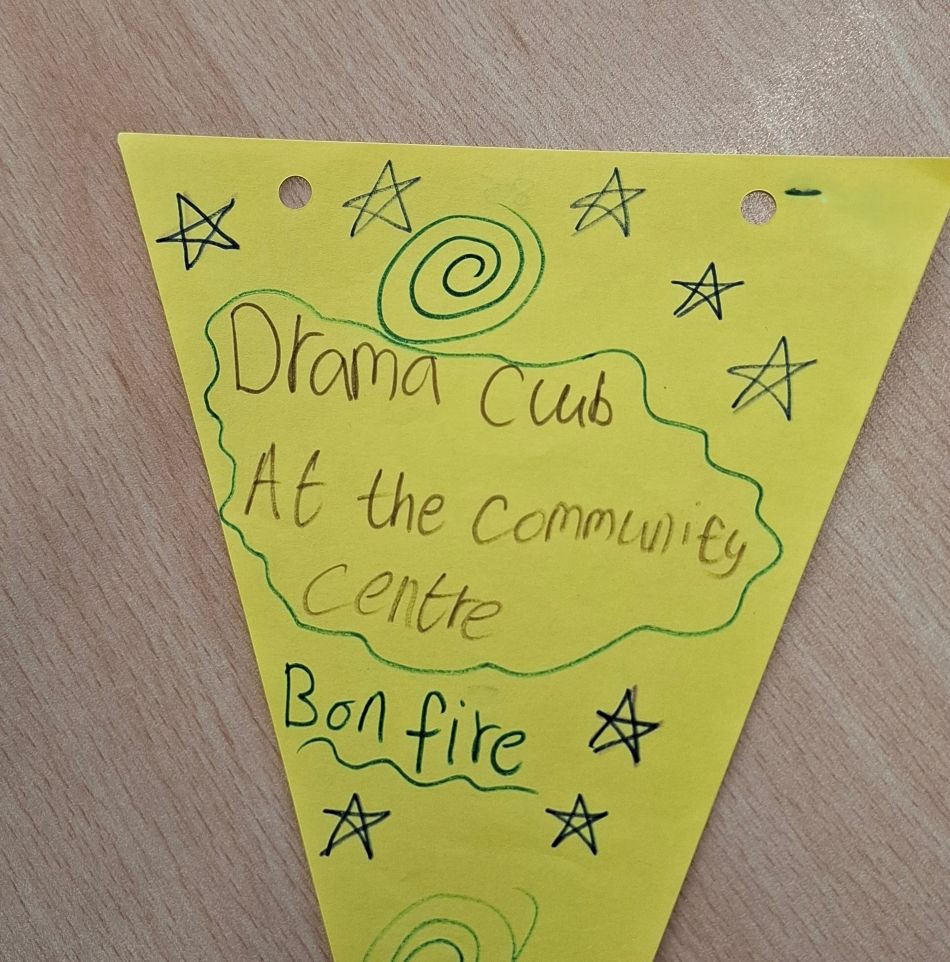 Drama Club
At the community
centre
Bonfire